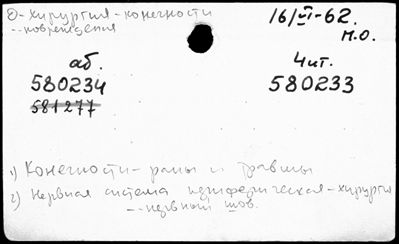 О-хирургия-конечности
--повреждения
16/VI-62.
М.О.
аб.
Чит.
580234
580233
581277
1) Конечности-раны и травмы
2) Нервная система периферическая-хирургия
--нервный шов.